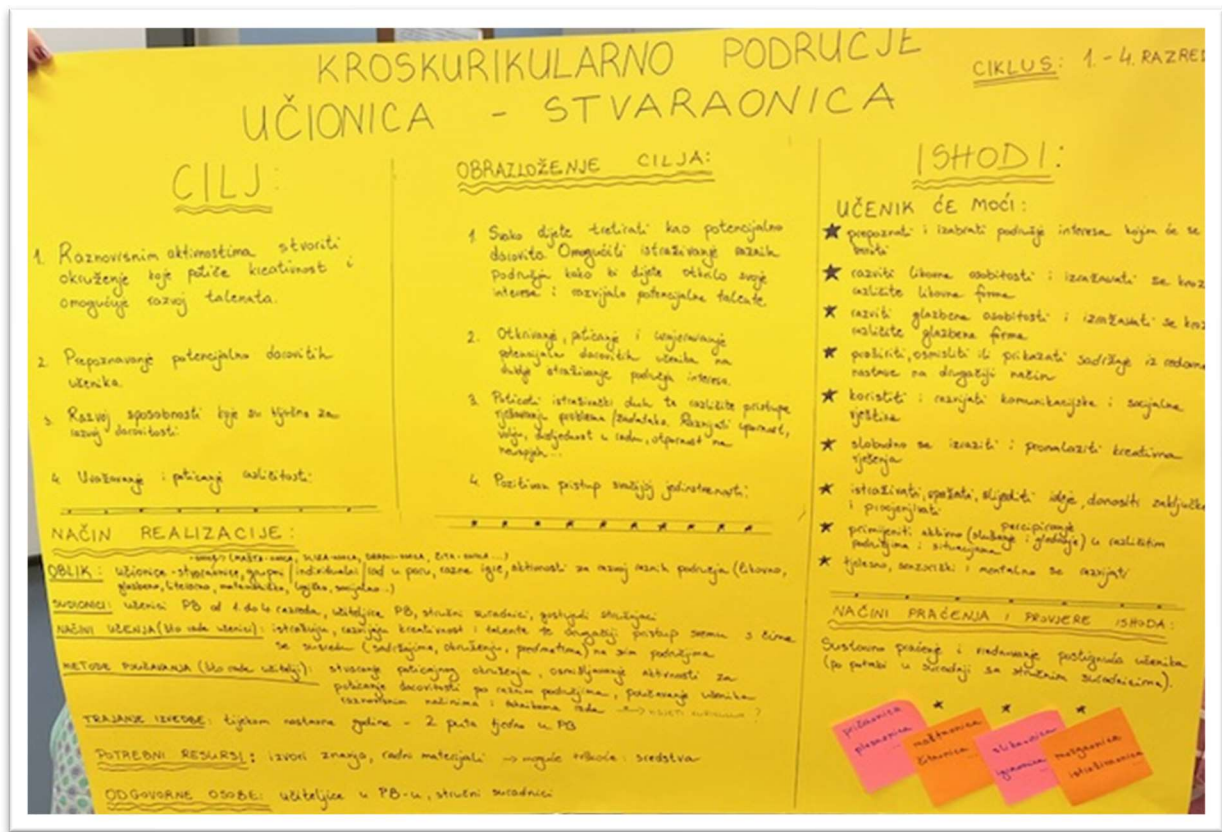 KROSKURIKULARNO PODRUČJE
UČIONICA - STVARAONICA
CIKLUS: 1. - 4. RAZRED
CILJ:
1. Raznovrsnim aktivnostima stvoriti
okruženje koje potiče kreativnost i
omogućuje razvoj talenata.
2. Prepoznavanje potencijalno darovitih
učenika.
3. Razvoj sposobnosti koje su ključne za
razvoj darovitosti.
4. Uvažavanje i poticanje različitosti.
OBRAZLOŽENJE CILJA:
1. Svako dijete tretirati kao potencijalno
darovito. Omogućiti istraživanje raznih
područja kako bi dijete otkrilo svoje
interese i razvijalo potencijalne talente
2. Otkrivanje, poticanje i usmjeravanje
potencijalno darovitih učenika na
dublje istraživanje područja interesa.
3. Poticati istraživački duh te različite pristupe
rješavanju problema/zadataka. Razvijati upornost,
volju, dosljednost u radu, otpornost na
neuspjeh...
4. Pozitivan pristup svačijoj jedinstvenosti.
ISHODI:
UČENIK ĆE MOĆI:
prepoznati i izabrati područje interesa kojim će se
baviti
razviti likovne osobitosti i izražavati se kroz
različite likovne forme
razviti glazbene osobitosti i izražavati se kroz
različite glazbene forme
proširiti, osmisliti ili prikazati sadržaje iz redovne
nastave na drugačiji način
koristiti i razvijati komunikacijske i socijalne
vještine
slobodno se izraziti i pronalaziti kreativna
rješenja
istraživati, opažati, slijediti ideje, donositi zaključke
i procjenjivati
percipiranje
primijeniti aktivno (slušanje i gledanje) u različitim
područjima i situacijama
tjelesno, senzorički i mentalno se razvijati
NAČIN REALIZACIJE:
OBLIK: učionice-stvaraonice, grupni/individualni/rad u paru, razne igre, aktivnosti za razvoj raznih područja (likovno,
glazbeno, literarno, matematičko, logičko, socijalno...)
SUDIONICI: učenici PB od 1. do 4. razreda, učiteljice PB, stručni suradnici, gostujući stručnjaci
NAČINI UČENJA (što rade učenici): istražuju, razvijaju kreativnost i talente te drugačiji pristup svemu s čime
se susreću (sadržajima, okruženju, predmetima) na svim područjima
METODE POUČAVANJA (što rade učitelji): stvaranje poticajnog okruženja, osmišljavanje aktivnosti za
poticanje darovitosti po raznim područjima, poučavanje učenika
raznovrsnim načinima i tehnikama rada
TRAJANJE IZVEDBE: tijekom nastavne godine - 2 puta tjedno u PB
POTREBNI RESURSI: izvori znanja, radni materijali → moguće teškoće: sredstva
ODGOVORNE OSOBE: učiteljice u PB-u, stručni suradnici
NAČINI PRAĆENJA I PROVJERE ISHODA:
Sustavno praćenje i vrednovanje postignuća učenika
(po potrebi u suradnji sa stručnim suradnicima).
pričaonica
plesaonica
maštaonica
čitaonica
slikaonica
igraonica
mozgaonica
istraživaonica